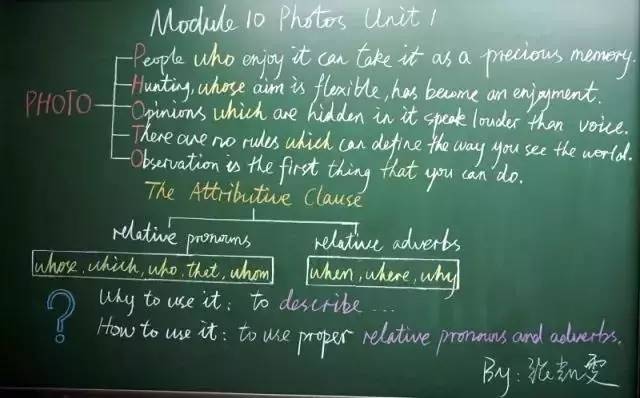 Module 10 Photos Unit 1
PHOTO
People who enjoy it can take it as a precious memory.
Hunting, whose aim is flexible, has become an enjoyment.
Opinions which are hidden in it speak louder than voice.
There are no rules which can define the way you see the world.
Observation is the first thing that you can do.
The Attributive Clause
relative pronouns relative adverbs
whose, which, who, that, whom when, where, why
? Why to use it: to describe ...
How to use it: to use proper relative pronouns and adverbs.
By: 张